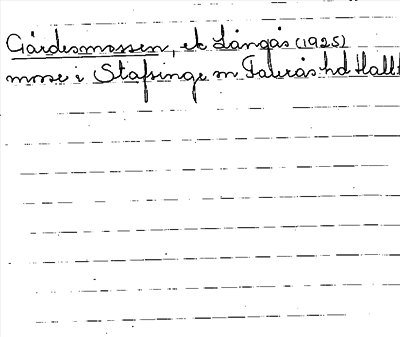 Gärdesmossen, ek Långås (1925)
mosse i Stafsinge sn Faurås hd Hall